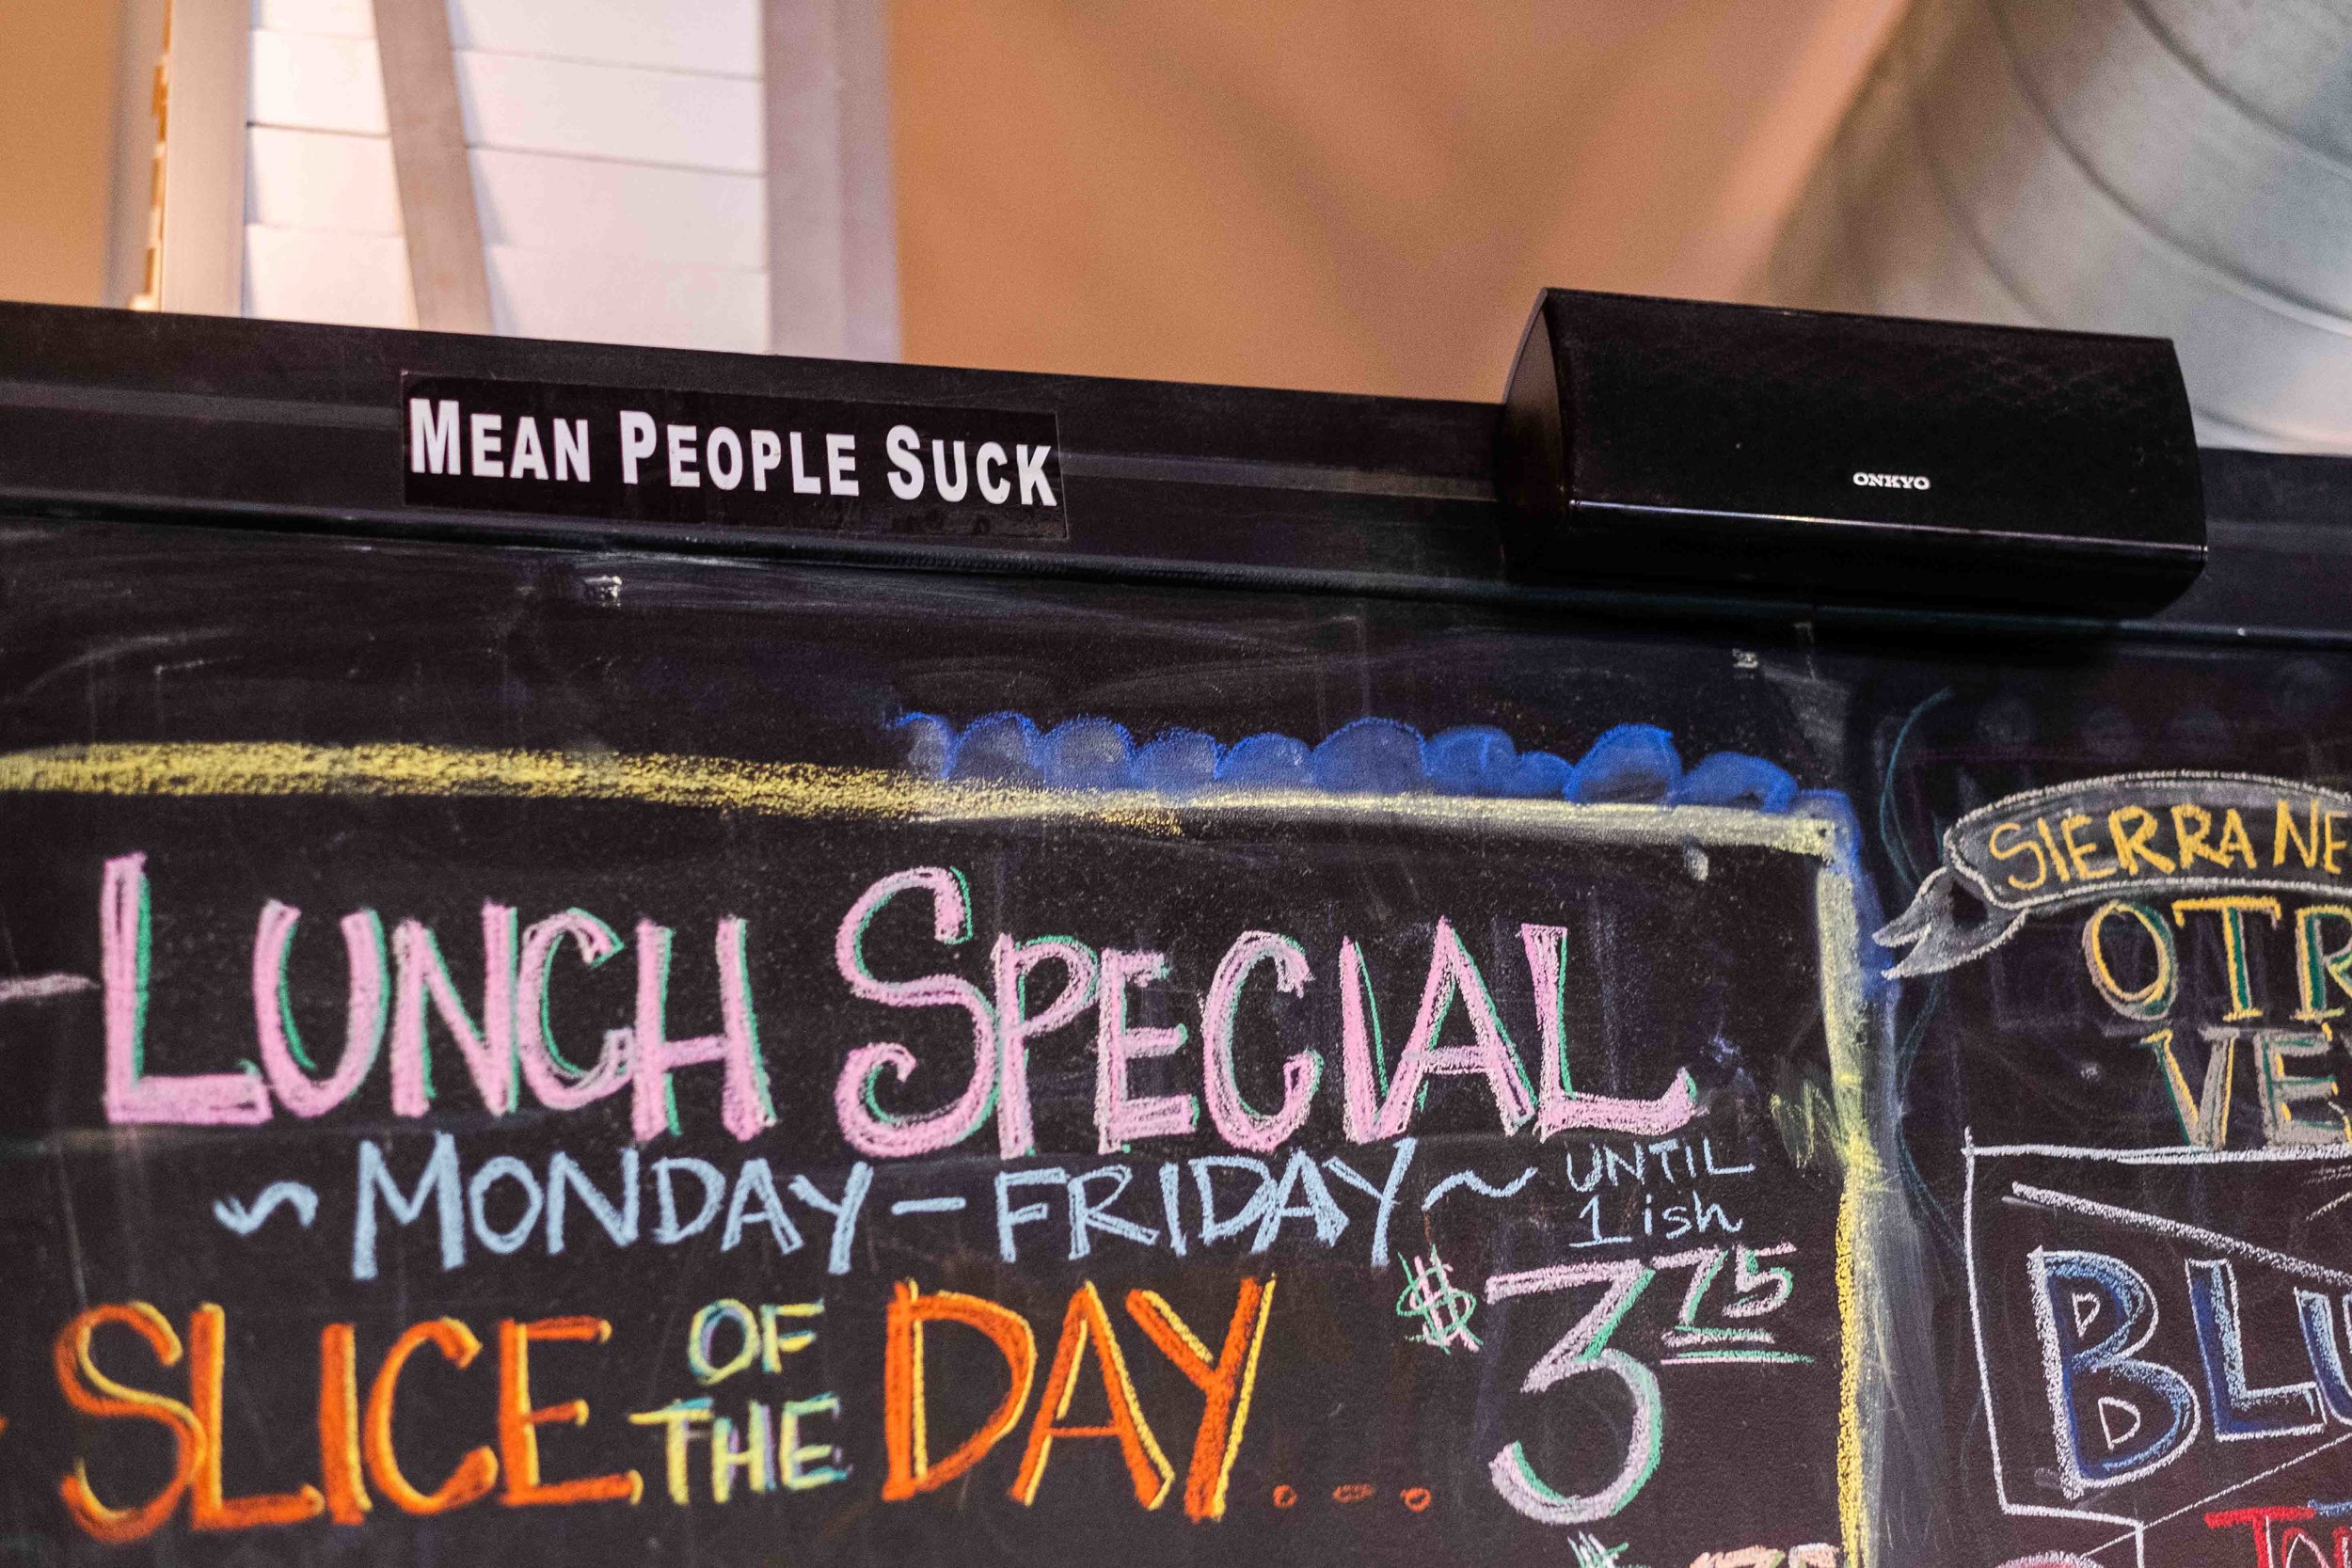 MEAN PEOPLE SUCK
ONKYO
LUNCH SPECIAL
~ MONDAY - FRIDAY ~ UNTIL 1 ish
SLICE OF THE DAY... $3 75
SIERRA NE
OTR
VE
BLU